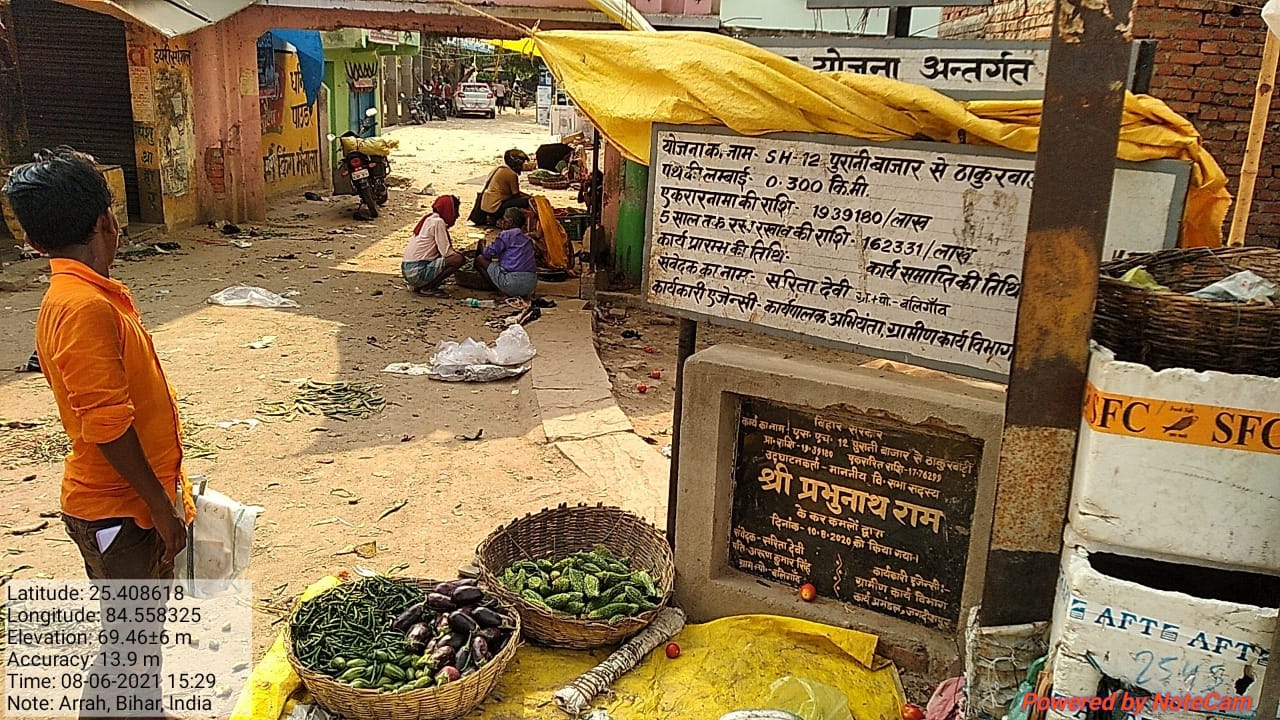 योजना अन्तर्गत
योजना का नाम- SH-12 पुरानी बाजार से ठाकुरवा
पथ की लम्बाई- 0.300 कि.मी.
एकरारनामा की राशि- 1939180/लाख
5 साल तक रख रखाव की राशि- 162331/लाख
कार्य प्रारम्भ की तिथि-
कार्य समाप्ति की तिथि
संवेदक का नाम- सरिता देवी ग्रा.+पो.-बलिगाँव
कार्यकारी एजेन्सी- कार्यपालक अभियंता, ग्रामीण कार्य विभाग
बिहार सरकार
कार्य का नाम- एस. एच. 12 पुरानी बाजार से ठाकुरबाड़ी
प्रा. राशि-19.39180 एकरारित राशि-17.76299
उद्घाटनकर्ता- माननीय वि. सभा सदस्य
श्री प्रभुनाथ राम
के कर कमलों द्वारा
दिनांक- 10.8.2020 को किया गया।
संवेदक- सरिता देवी
पति-अरूण कुमार सिंह
ग्राम+पो-बलिगाँव
कार्यकारी एजेन्सी:-
ग्रामीण कार्य विभाग
कार्य प्रमण्डल,
SFC SFC
AFT AFT
Latitude: 25.408618
Longitude: 84.558325
Elevation: 69.46±6 m
Accuracy: 13.9 m
Time: 08-06-2021 15:29
Note: Arrah, Bihar, India
Powered by NoteCam